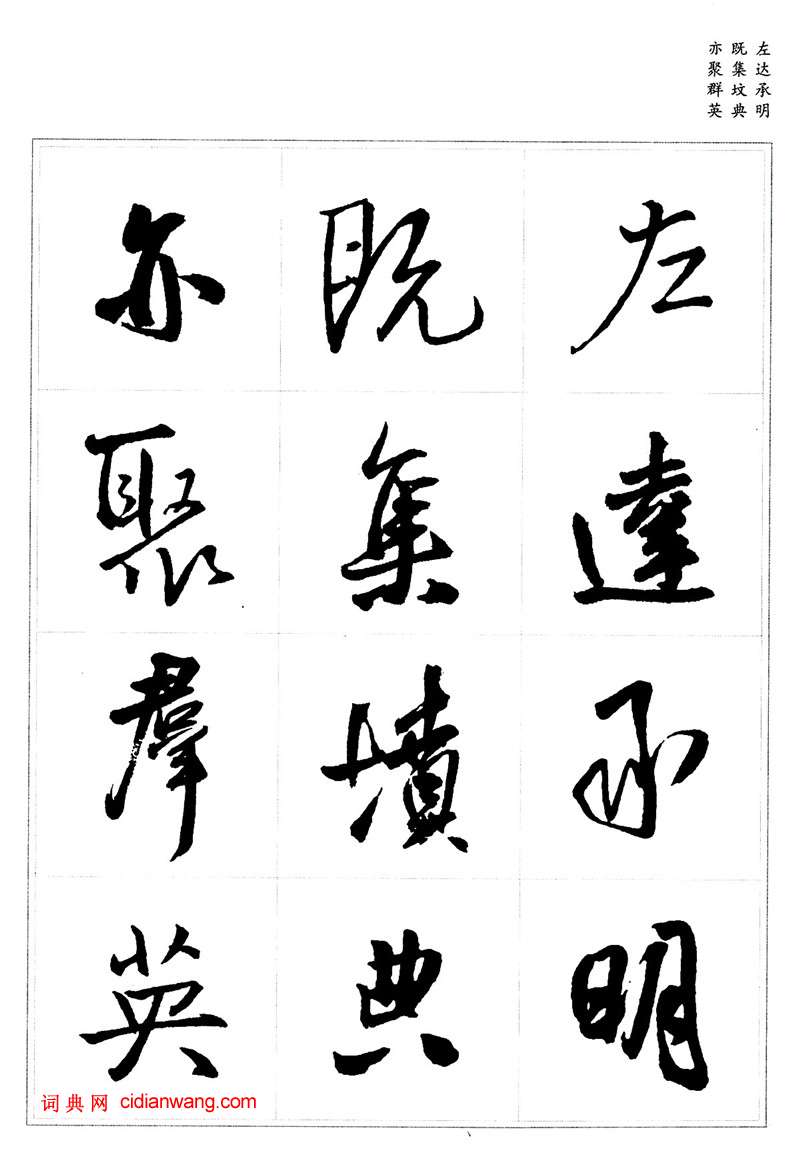 左达承明
既集坟典
亦聚群英
左達承明
既集墳典
亦聚羣英
词典网 cidianwang.com